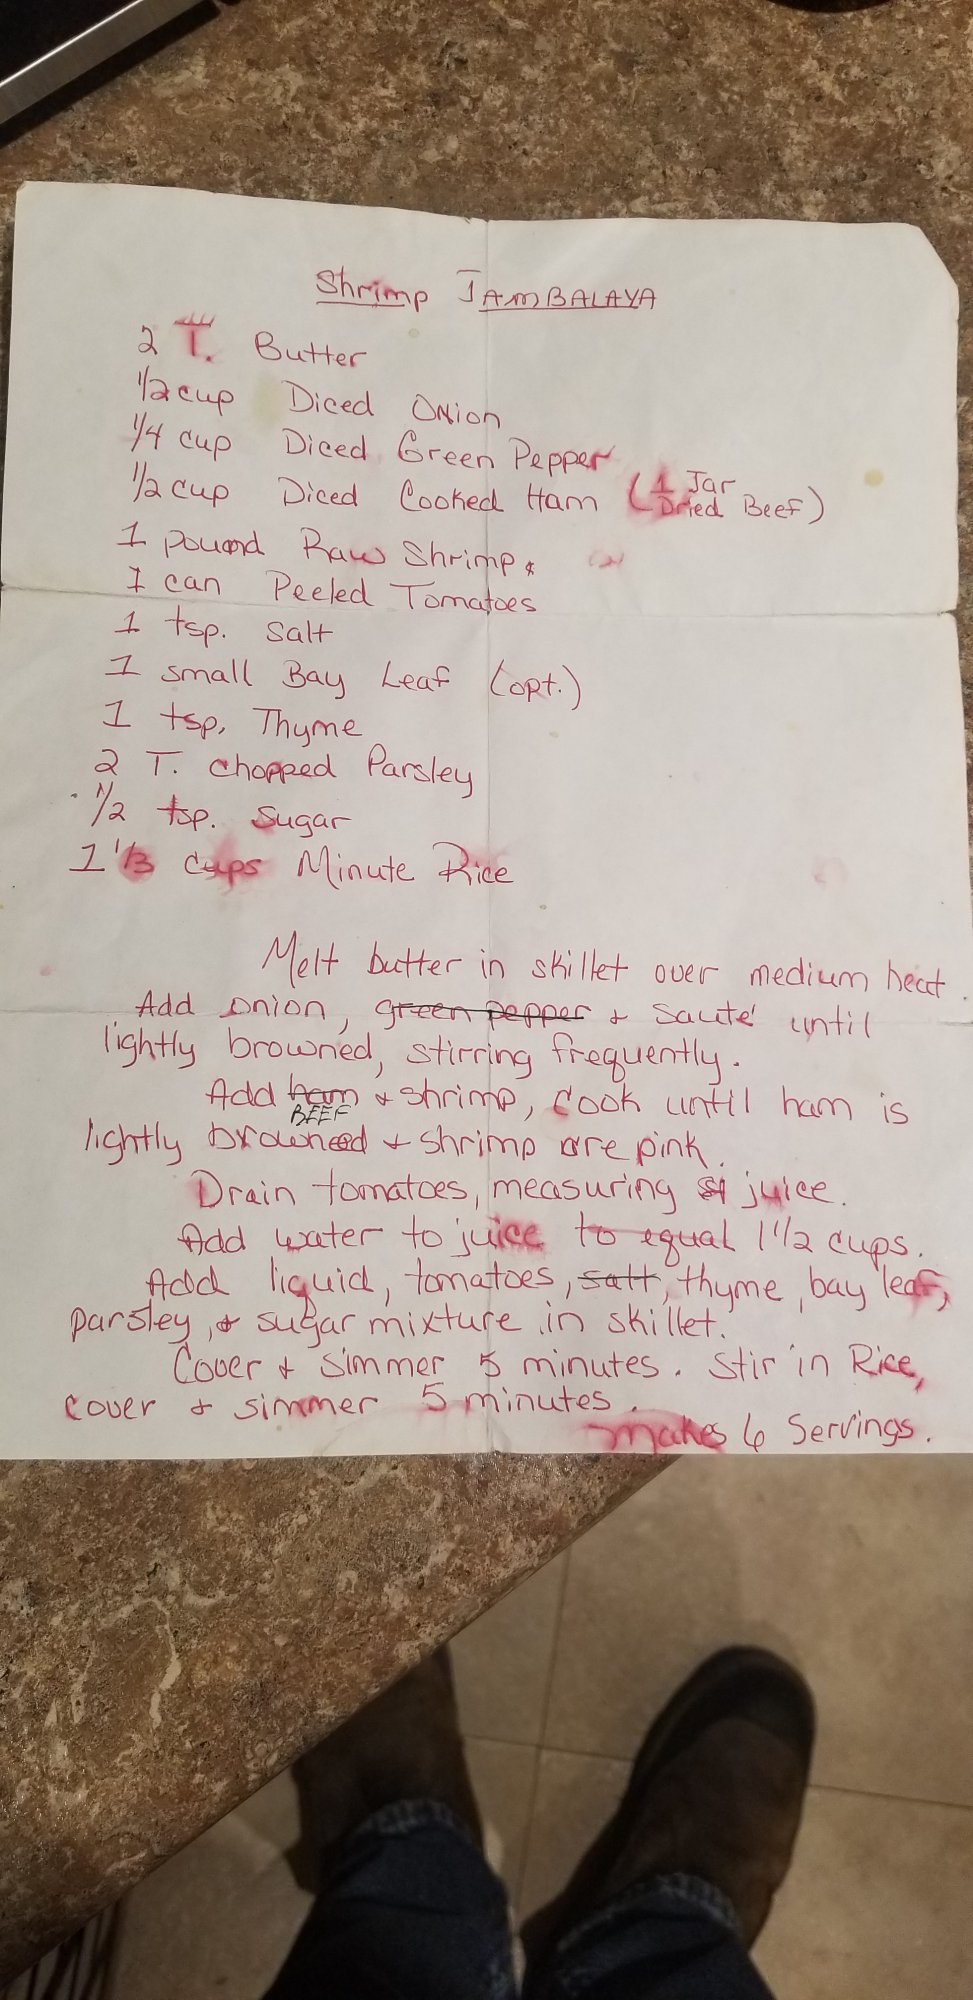 Shrimp JAMBALAYA
2 T. Butter
1/2 cup Diced Onion
1/4 cup Diced Green Pepper
1/2 cup Diced Cooked Ham (1 Jar Dried Beef)
1 pound Raw Shrimp
1 can Peeled Tomatoes
1 tsp. Salt
1 small Bay Leaf (opt.)
1 tsp. Thyme
2 T. chopped Parsley
1/2 tsp. Sugar
1 1/3 cups Minute Rice
Melt butter in skillet over medium heat.
Add onion, green pepper & sauté until
lightly browned, stirring frequently.
Add ham & shrimp, cook until ham is
BEEF
lightly browned & shrimp are pink.
Drain tomatoes, measuring juice.
Add water to juice to equal 1 1/2 cups.
Add liquid, tomatoes, salt, thyme, bay leaf,
parsley, & sugar mixture in skillet.
Cover & simmer 5 minutes. Stir in Rice,
cover & simmer 5 minutes.
makes 6 Servings.